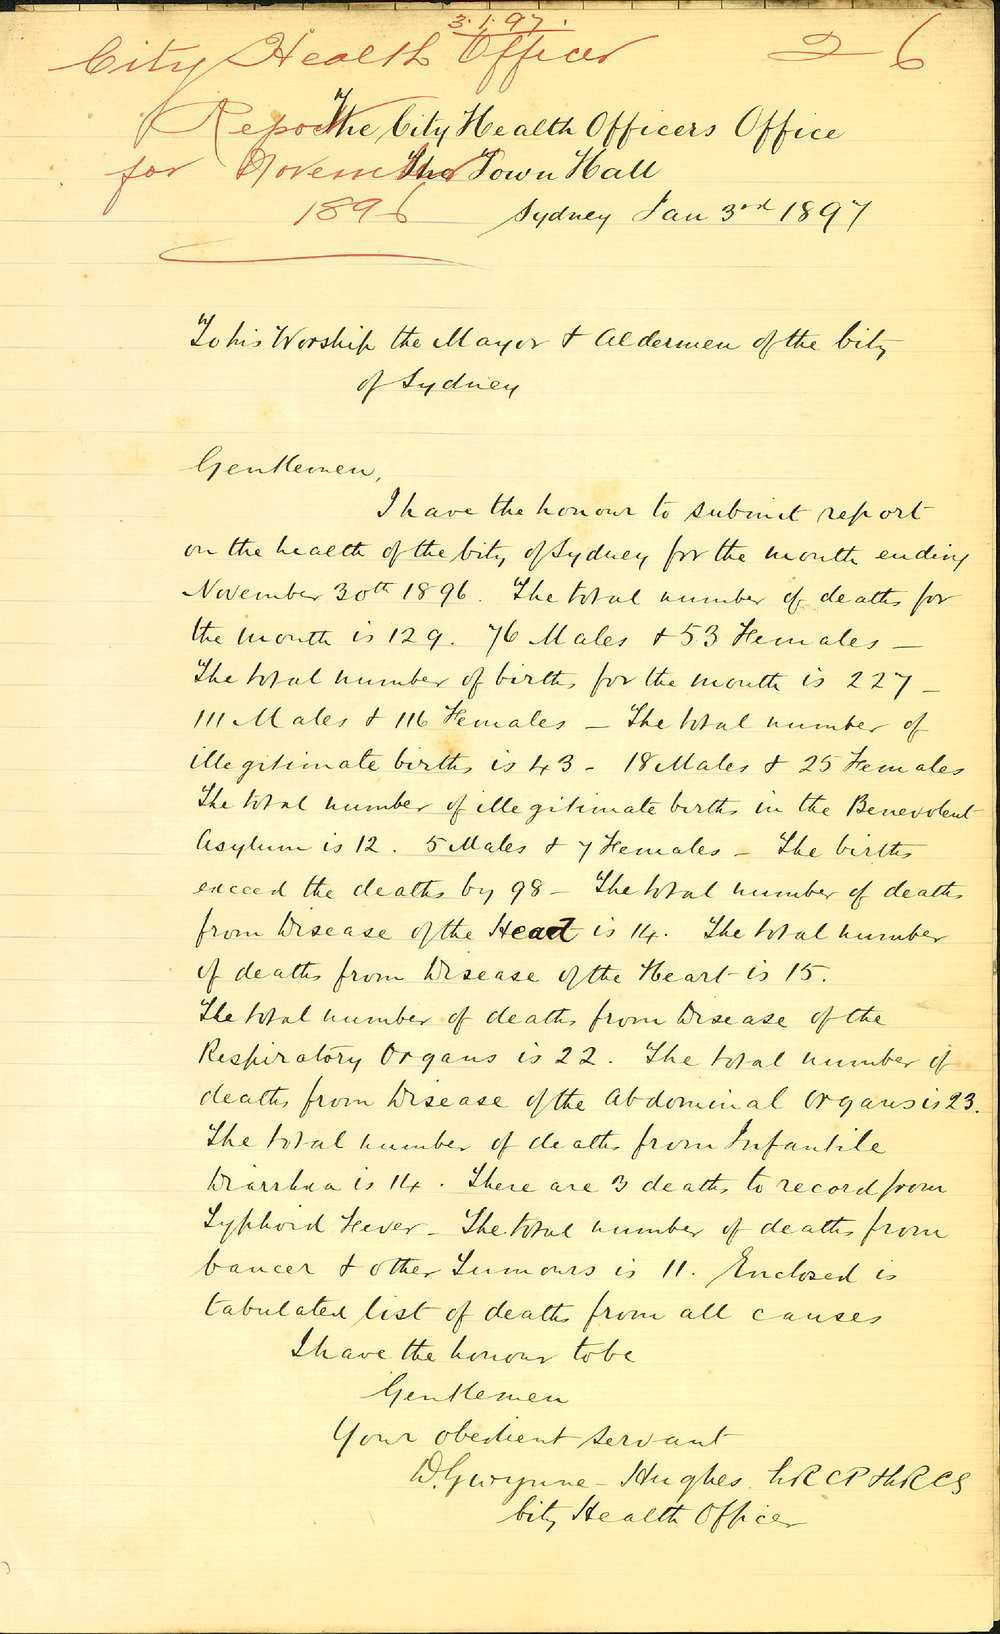 3.1.97.
City Health Officer 26
Report
for November
1896
The City Health Officers Office
The Town Hall
Sydney Jan 3rd 1897
To his Worship the Mayor & Aldermen of the City
of Sydney
Gentlemen,
I have the honour to submit report
on the health of the City of Sydney for the month ending
November 30th 1896. The total number of deaths for
the month is 129. 76 Males & 53 Females –
The total number of births for the month is 227 –
111 Males & 116 Females – The total number of
illegitimate births is 43 – 18 Males & 25 Females
The total number of illegitimate births in the Benevolent
Asylum is 12. 5 Males & 7 Females – The births
exceed the deaths by 98 – The total number of deaths
from Disease of the Head is 14. The total number
of deaths from Disease of the Heart is 15.
The total number of deaths from Disease of the
Respiratory Organs is 22. The total number of
deaths from Disease of the Abdominal Organs is 23.
The total number of deaths from Infantile
Diarrhea is 14. There are 3 deaths to record from
Typhoid Fever – The total number of deaths from
Cancer & other Tumours is 11. Enclosed is
tabulated list of deaths from all causes
I have the honour to be
Gentlemen
Your obedient servant
D. Gwynne-Hughes. LRCP & LRCS
City Health Officer